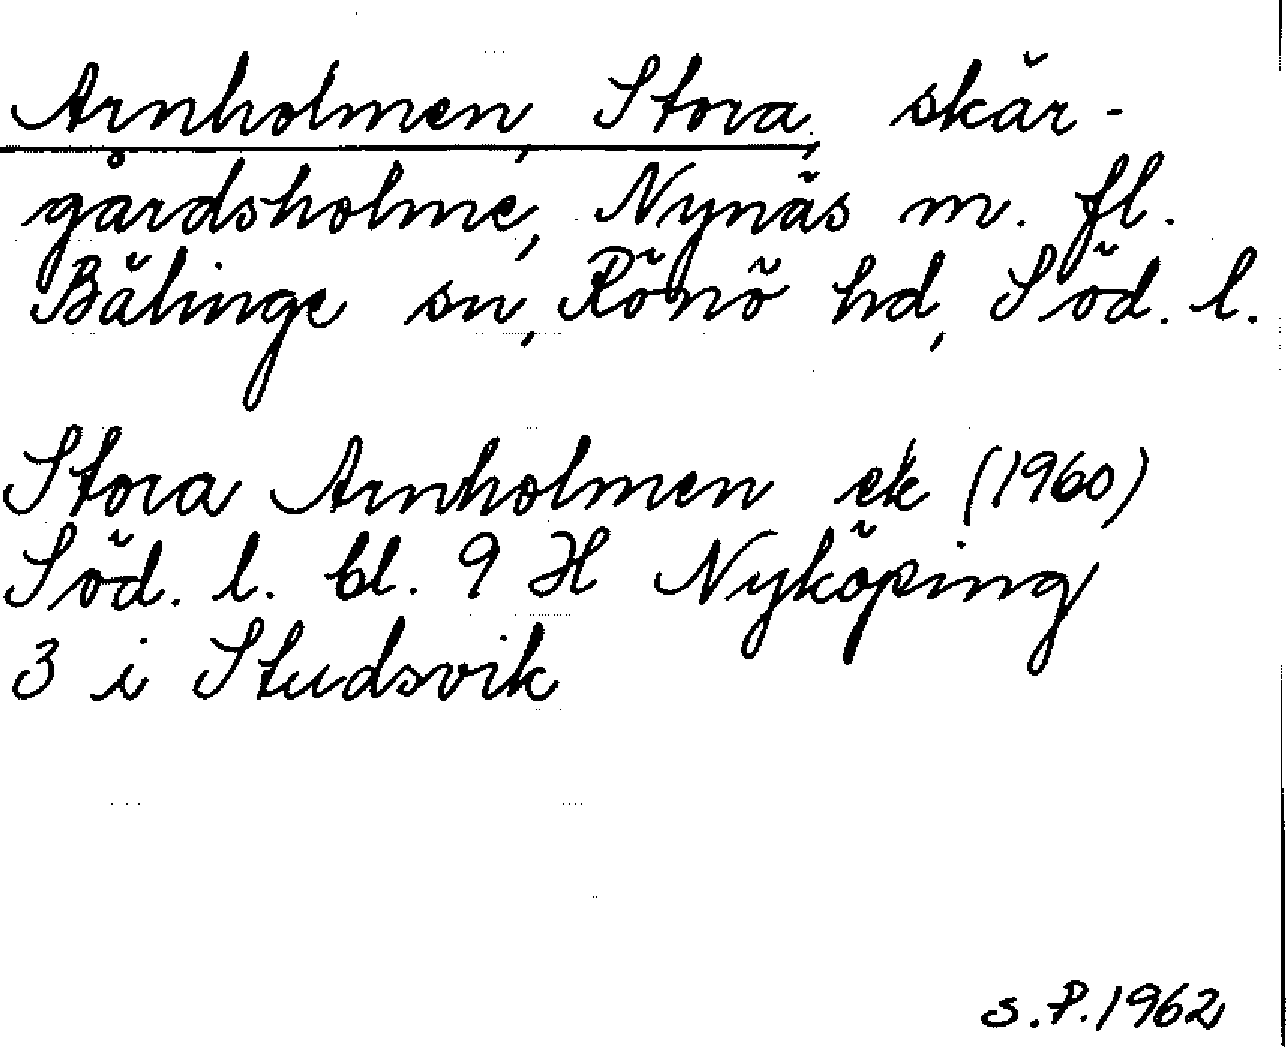 Arnholmen, Stora, skär-
gårdsholme, Nynäs m. fl.
Bälinge sn, Rönö hd, Söd. l.
Stora Arnholmen ek (1960)
Söd. l. bl. 9 H Nyköping
3 i Studsvik
S.P. 1962